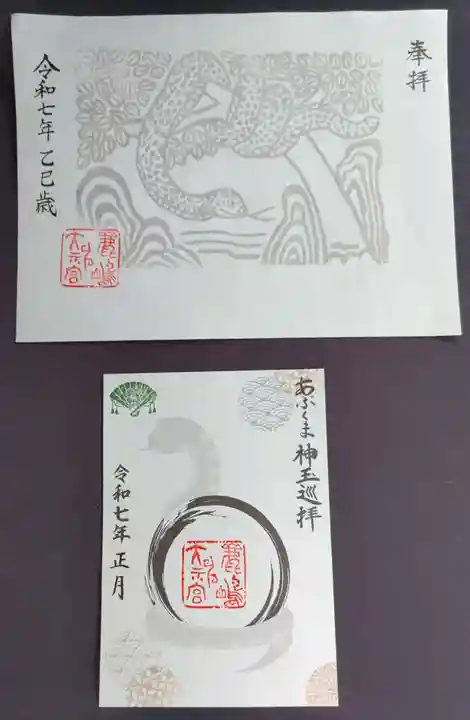 奉拝
令和七年 乙巳歳
鹿嶋
大神宮
あぶくま神玉巡拝
鹿嶋
大神宮
令和七年 正月